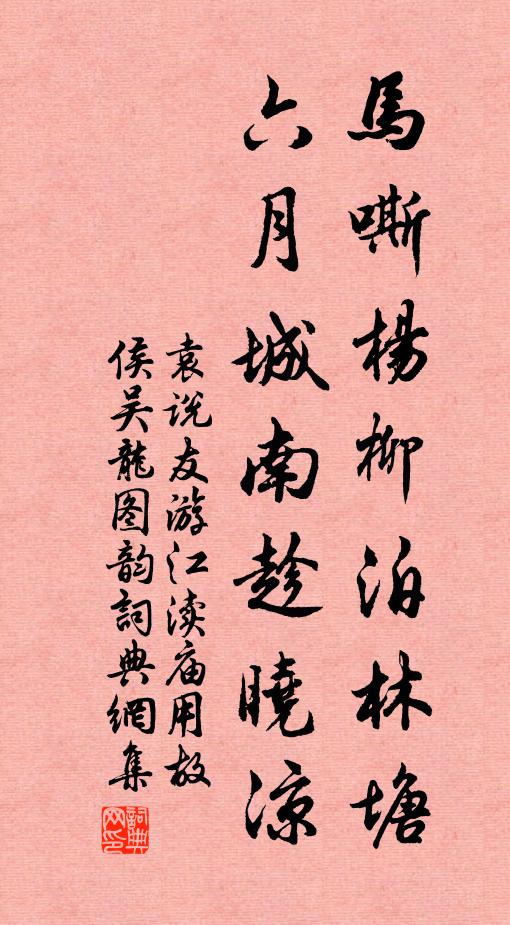 馬嘶楊柳泊林塘
六月城南趁曉涼
袁说友游江渎庙用故
侯吴龍图韵詞典網集
詞典網印